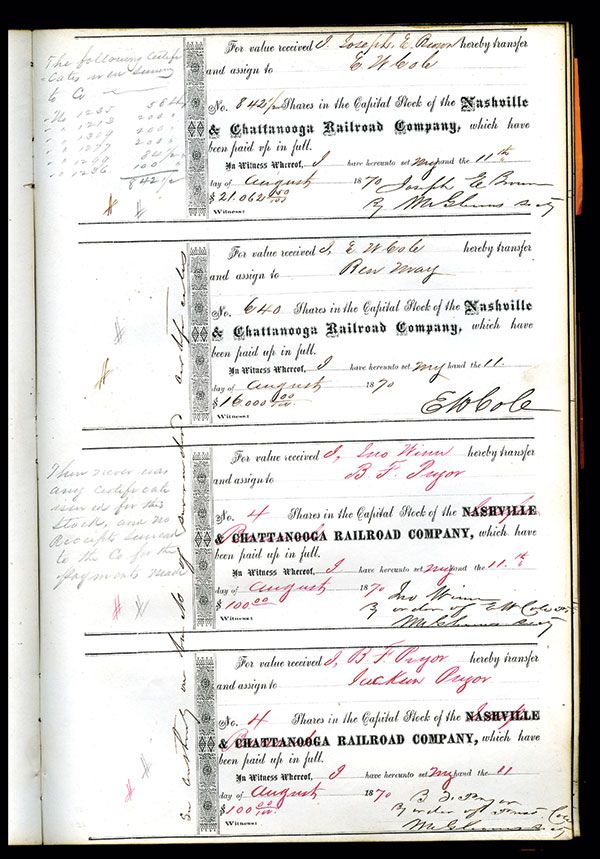 The following Certifi
cates were
to Co
No 1235 584
" " 1273 200
" " 1309 100
" " 1297 200
" " 1269
" " 1286 100
842½
For value received I Joseph E Brown hereby transfer
and assign to E W Cole
No. 842½ Shares in the Capital Stock of the Nashville
& Chattanooga Railroad Company, which have
been paid up in full.
In Witness Whereof, I have hereunto set my hand the 11th
day of August 1870 Joseph E Brown
$21.062 50/100 By
Witness:
For value received I, E W Cole hereby transfer
and assign to Ben May
No. 640 Shares in the Capital Stock of the Nashville
& Chattanooga Railroad Company, which have
been paid up in full.
In Witness Whereof, I have hereunto set my hand the 11
day of August 1870
$16000 00/100 E W Cole
Witness:
There never was
any certificate
issued for this
stock, and no
Receipts
to the Co for the
payments made
For value received I, Jno Winn hereby transfer
and assign to B. F. Pryor
No. 4 Shares in the Capital Stock of the NASHVILLE
& CHATTANOOGA RAILROAD COMPANY, which have
been paid up in full.
In Witness Whereof, I have hereunto set my hand the 11th
day of August 1870 Jno Winn
$100 00 By order of E W Cole
Witness:
For value received I, B F Pryor hereby transfer
and assign to Pryor
No. 4 Shares in the Capital Stock of the NASHVILLE
& CHATTANOOGA RAILROAD COMPANY, which have
been paid up in full.
In Witness Whereof, I have hereunto set my hand the 11
day of August 1870 B F Pryor
$100 00/100 By order of
Witness: